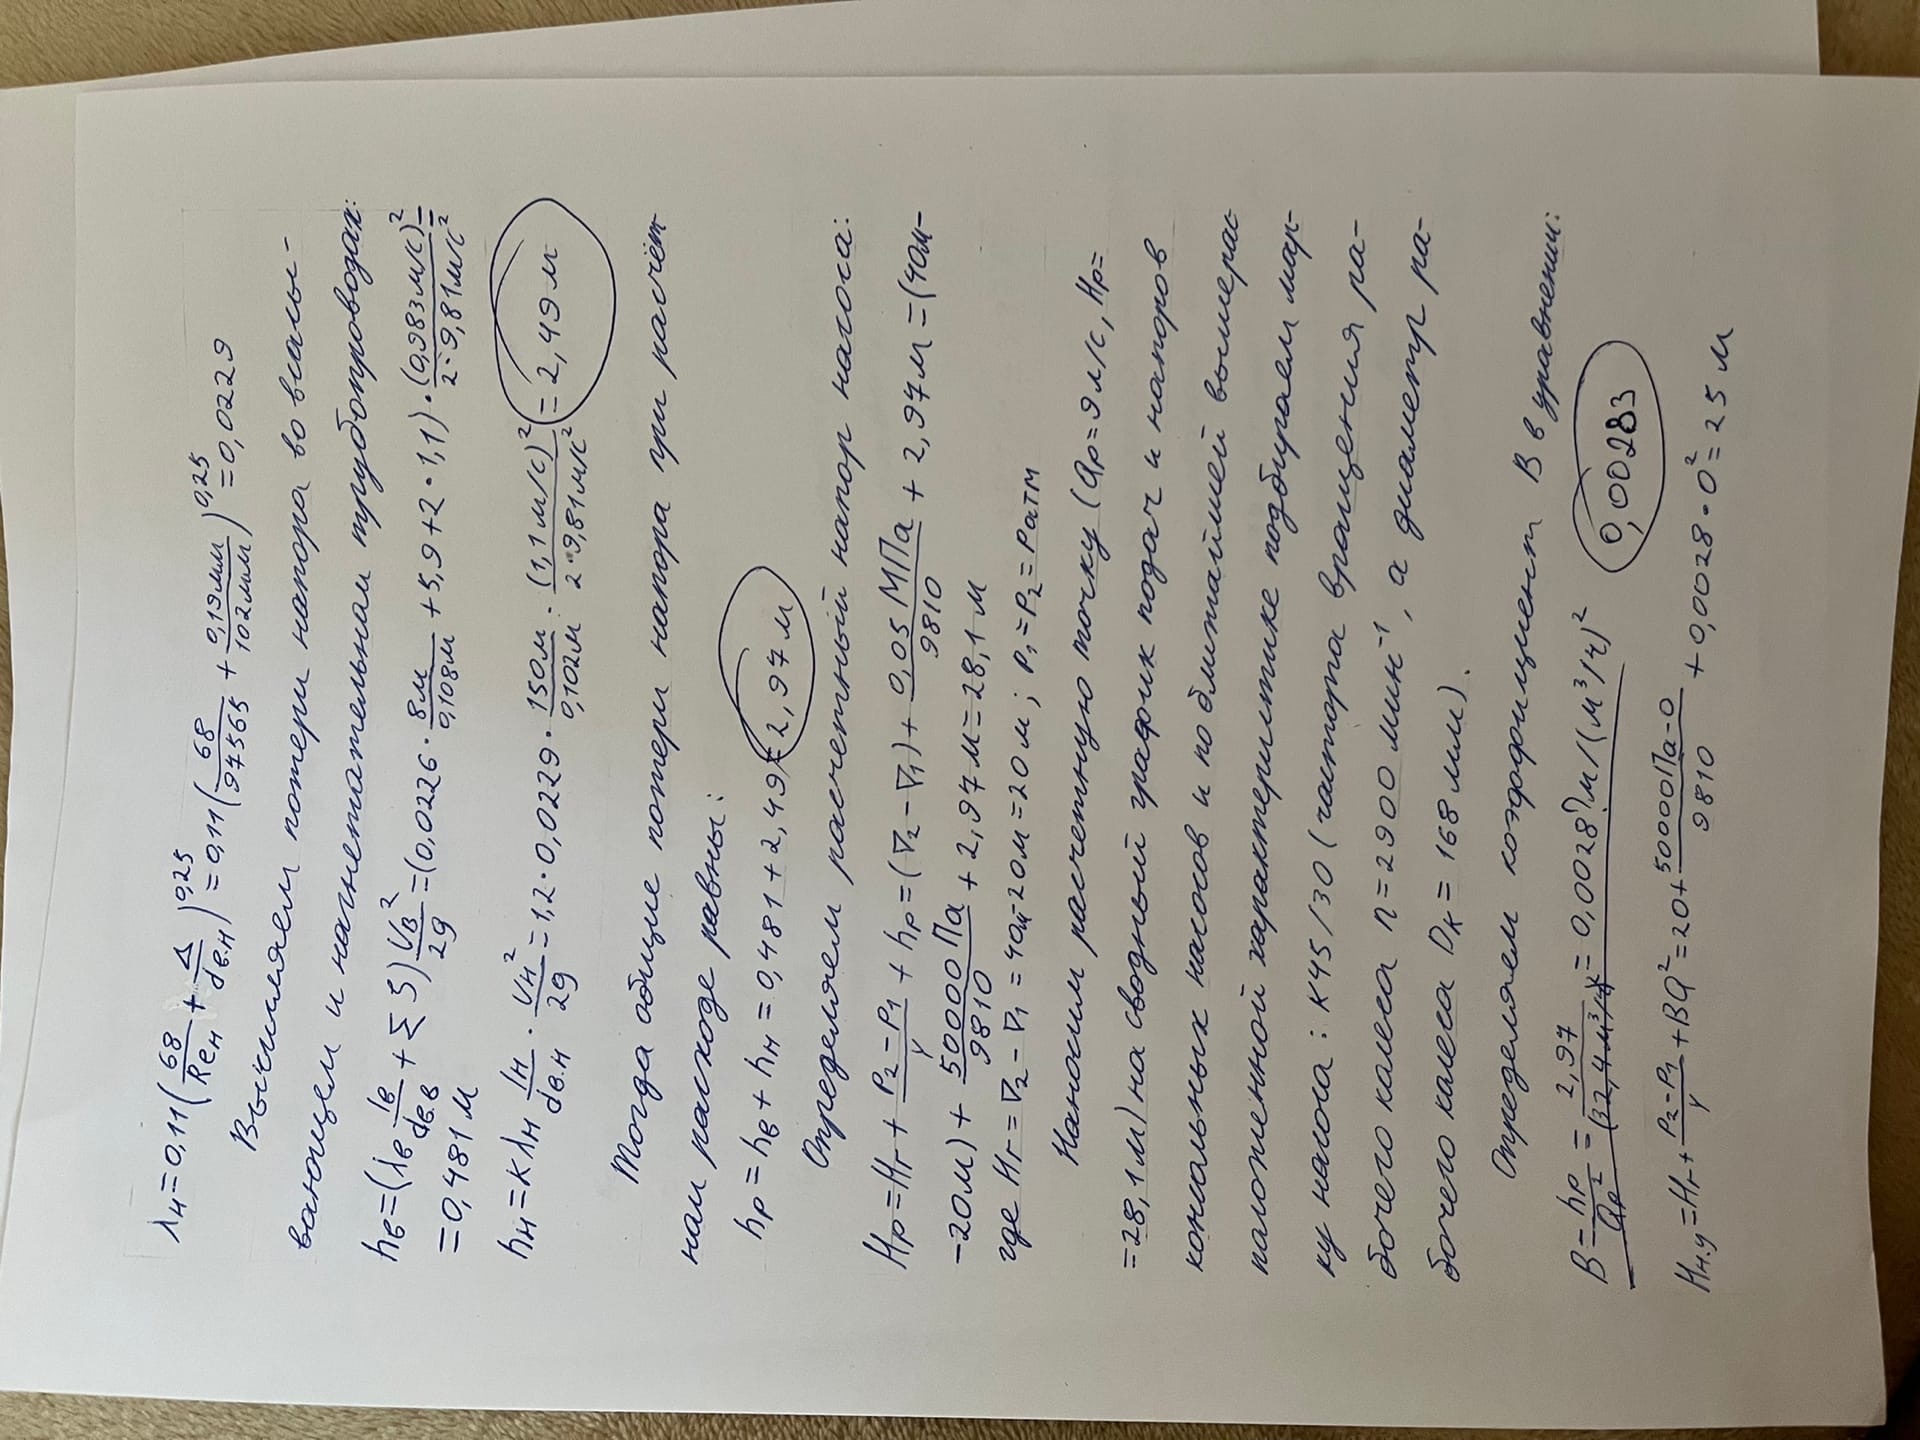 λн=0,11(68/Reн + Δ/dв.н)^0,25=0,11(68/97565 + 0,19мм/102мм)^0,25=0,0229
Вычисляем потери напора во всасы-
вающем и нагнетательном трубопроводах:
hв=(λв lв/dв.в + Σζ) Uв²/2g=(0,0226·8м/0,108м+5,9+2·1,1)·(0,983м/с)²/2·9,81м/с²=
=0,481м
hн=Kλн lн/dв.н · Uн²/2g=1,2·0,0229·150м/0,102м·(1,1м/с)²/2·9,81м/с²=2,49м
Тогда общие потери напора при расчёт
ном расходе равны:
hр=hв+hн=0,481+2,49=2,97м
Определяем расчетный напор насоса:
Hр=Hг+P₂-P₁/γ+hр=(∇₂-∇₁)+0,05МПа/9810+2,97м=(40м-
-20м)+50000Па/9810+2,97м=28,1м
где Hг=∇₂-∇₁=40м-20м=20м; P₁=P₂=Pатм
Наносим расчетную точку (Qр=9л/с, Hр=
=28,1м) на сводный график подач и напоров
консольных насосов и по ближайшей вышерас
положенной характеристике подбираем мар-
ку насоса: К45/30 (частота вращения ра-
бочего колеса n=2900 мин⁻¹, а диаметр ра-
бочего колеса Dк=168мм).
Определяем коэффициент B в уравнении:
B=hр/Qр²=2,97/(32,4м³/ч)²=0,0028?м/(м³/ч)² 0,00283
Hн.у=Hг+P₂-P₁/γ+BQ²=20+50000Па-0/9810+0,0028·0²=25м